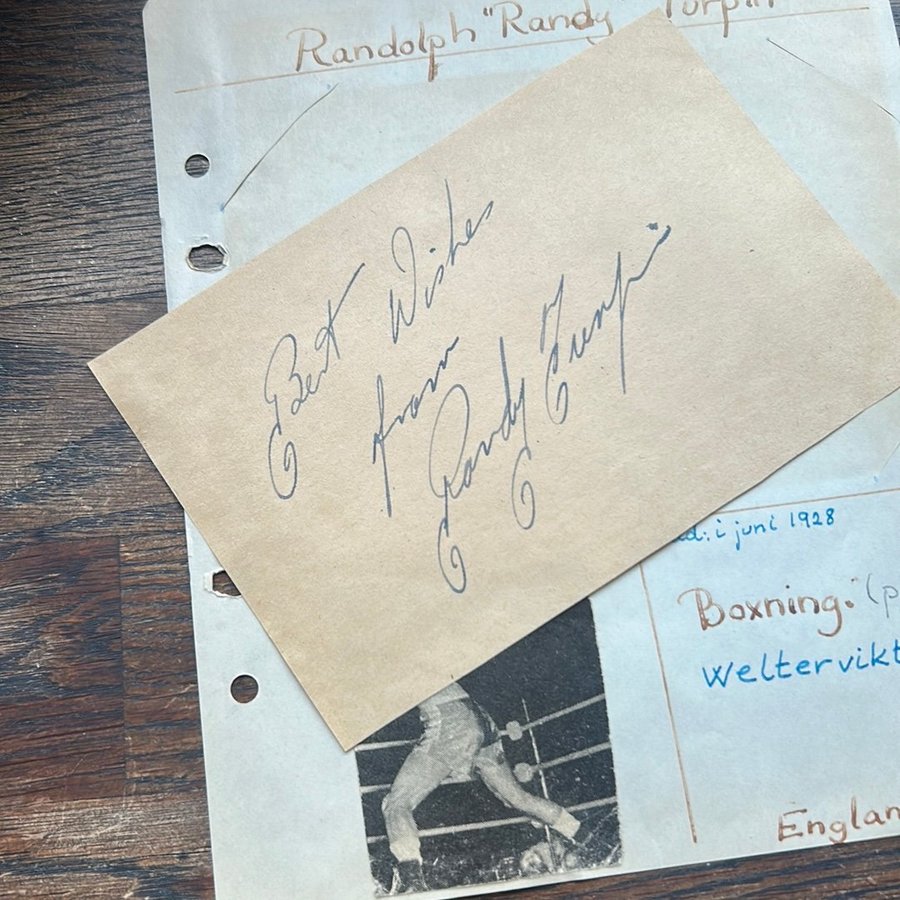 Randolph "Randy Turpin
Best Wishes
from
Randy Turpin
d: i juni 1928
Boxning. (p
Weltervikt
Englan